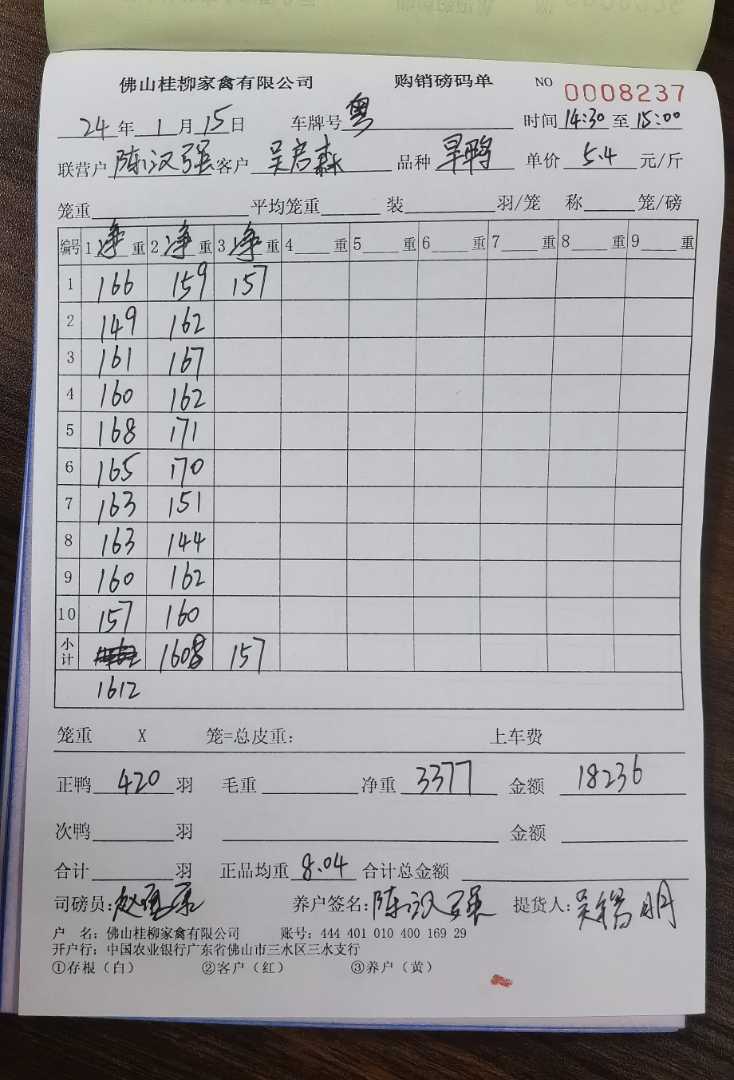 佛山桂柳家禽有限公司 购销磅码单 NO 0008237
24年1月15日 车牌号粤 时间14:30至15:00
联营户陈汉强客户吴启森品种旱鸭 单价5.4元/斤
笼重 平均笼重 装 羽/笼 称 笼/磅
编号 1净重 2净重 3净重 4重 5重 6重 7重 8重 9重
1 166 159 157
2 149 162
3 161 167
4 160 162
5 168 171
6 165 170
7 163 151
8 163 144
9 160 162
10 157 160
小计 1608 157
1612
笼重 X 笼=总皮重: 上车费
正鸭420羽 毛重 净重3377 金额18236
次鸭 羽 金额
合计 羽 正品均重8.04 合计总金额
司磅员: 养户签名:陈汉强 提货人:吴锡明
户 名:佛山桂柳家禽有限公司 账号:444 401 010 400 169 29
开户行:中国农业银行广东省佛山市三水区三水支行
①存根(白) ②客户(红) ③养户(黄)